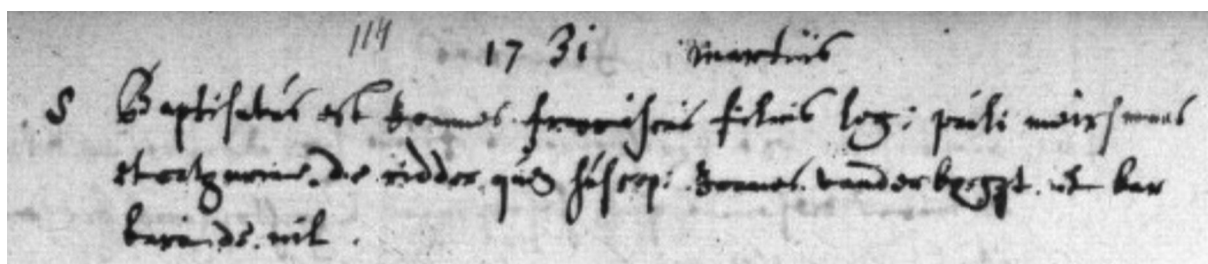 114 1731 Martius
8 Baptisatus est Joannes franciscus filius leg: pauli meirsmans
et catharine de ridder quem suscep: Joannes vander et bar
bara de